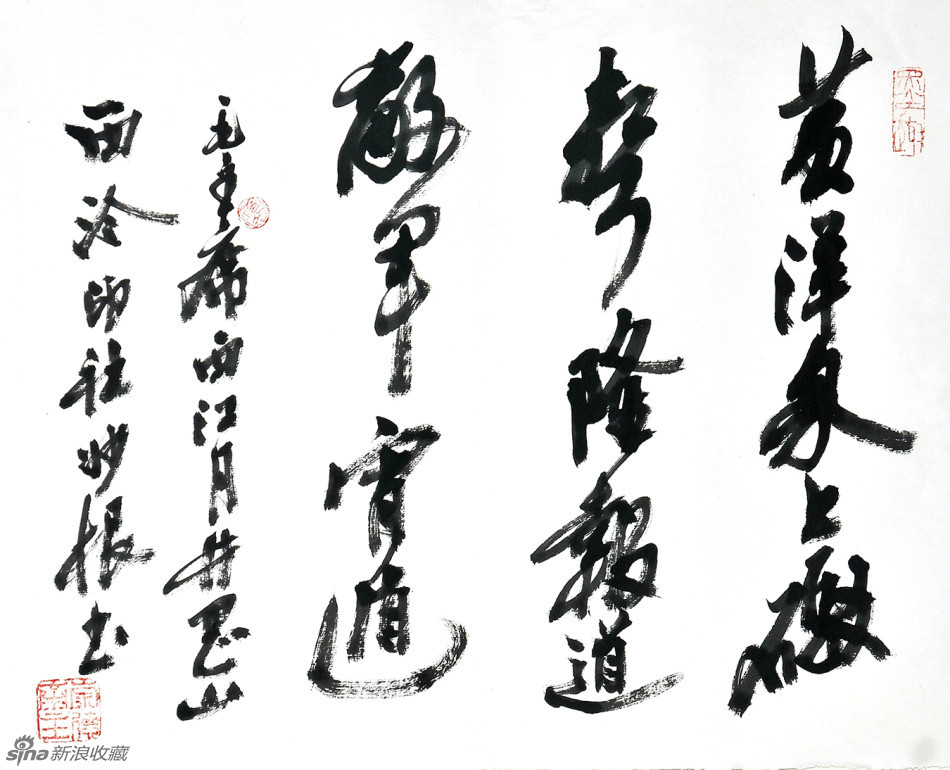 黄洋界上礮
声隆報道
敵軍宵遁
毛主席西江月井岡山
西泠印社妙根书
sina新浪收藏